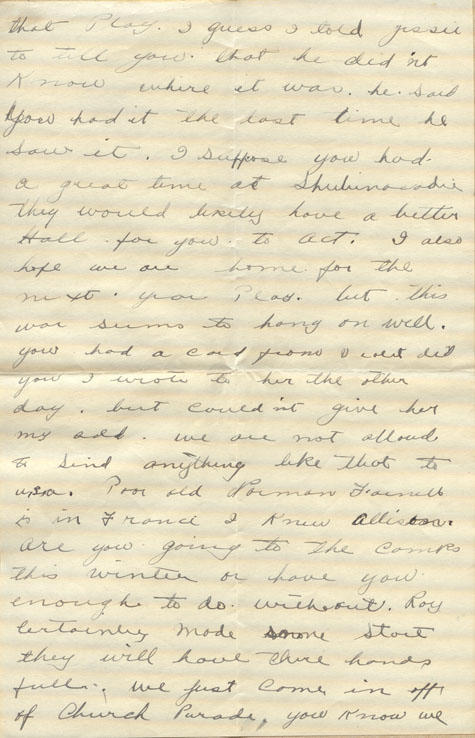 that Play. I guess I told Jessie
to tell you. that he did'nt
Know where it was. he said
you had it the last time he
saw it. I suppose you had
a great time at Shubinacadie
they would likely have a better
Hall for you. to act. I also
hope we are home for the
next. year Play. but this
war seems to hang on well.
you had a card from did
you I wrote to her the other
day. but could'nt give her
my add. we are not alloud
to send anything like that to
U.S.A. Poor old Norman
is in France I Knew Allison.
are you going to the camps
this winter or have you
enough to do. without. Roy
certainly made some start
they will have there hands
full. we just come in off
of Church Parade, you Know we